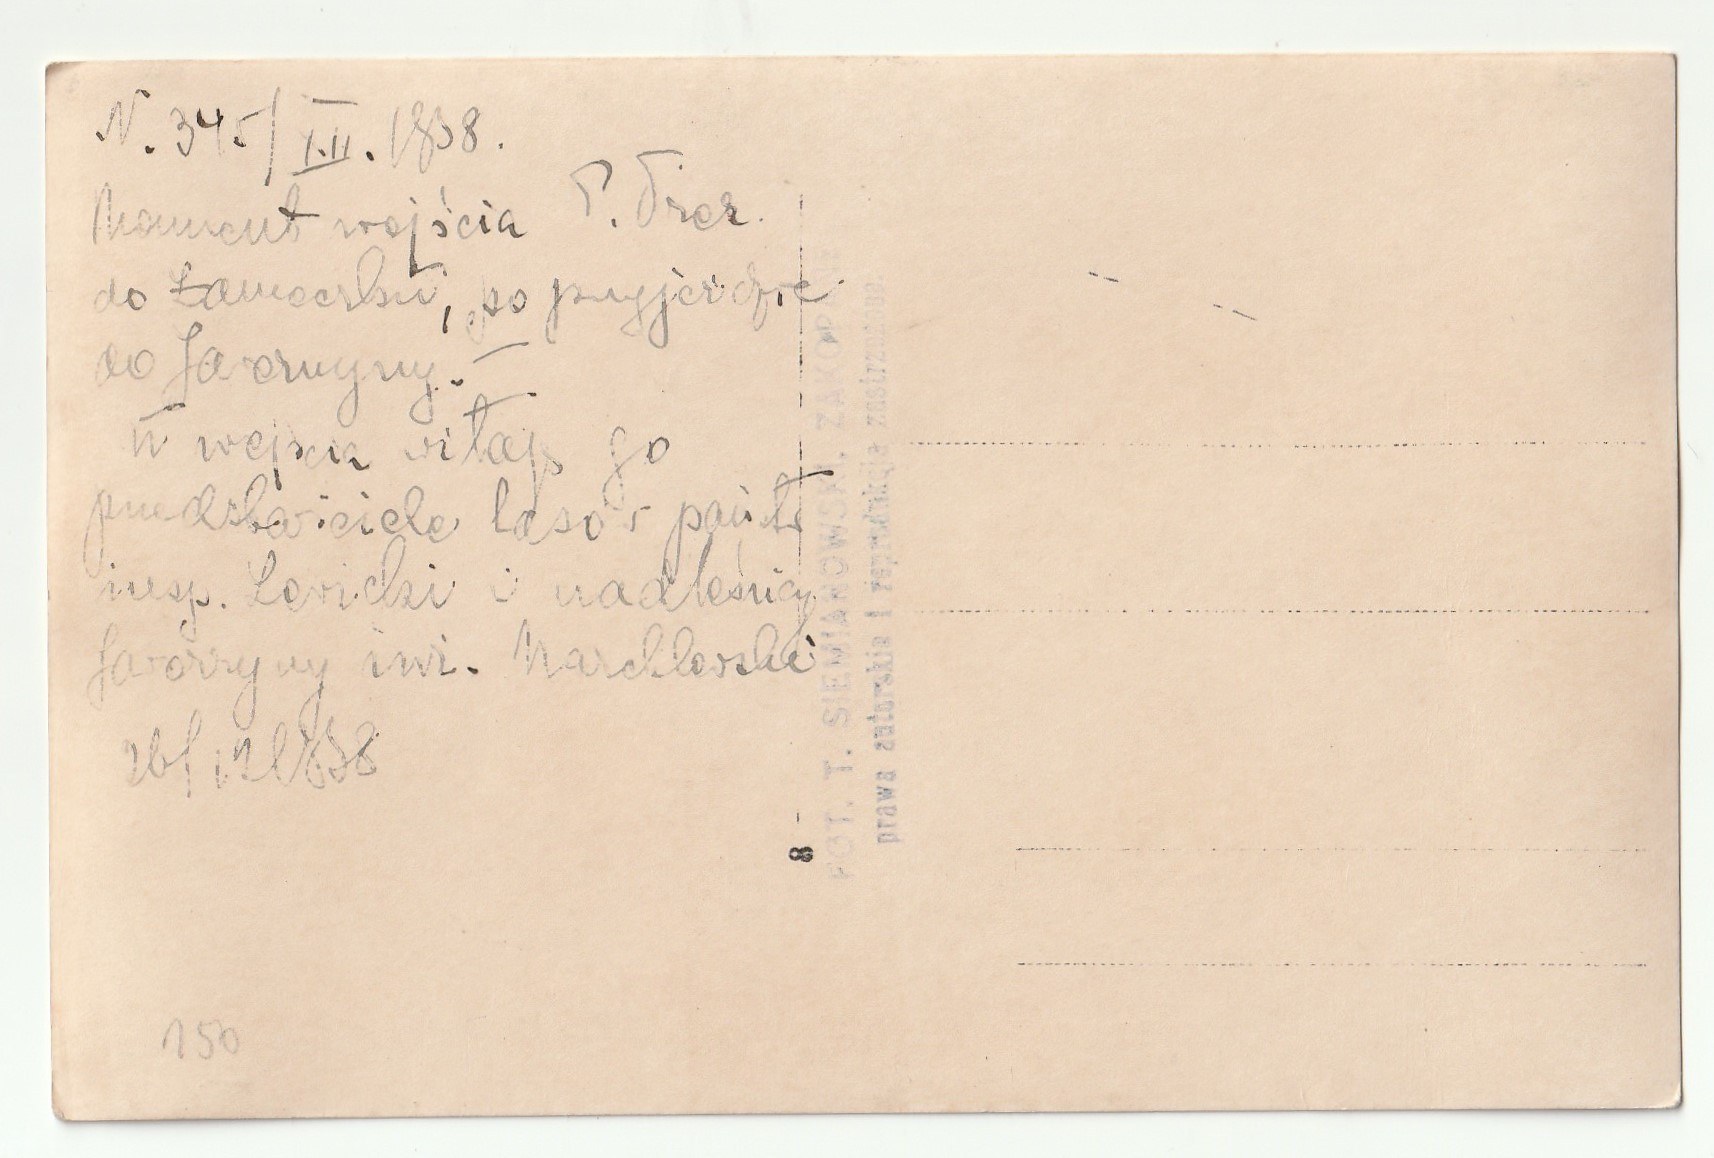 N. 345/I.II. 1938.
Moment wejścia P. Prez.
do Zameczku, po przyjeździe
do Jaworzyny. —
W wejściu witają go
przedstawiciele lasów państw
insp. Lewicki i nadleśniczy
Jaworzyny inż. Marchlewski
26/12 1938
150
8 -
FOT. T. SIEMIANOWSKI. ZAKOPANE
prawa autorskie i reprodukcja zastrzeżone.